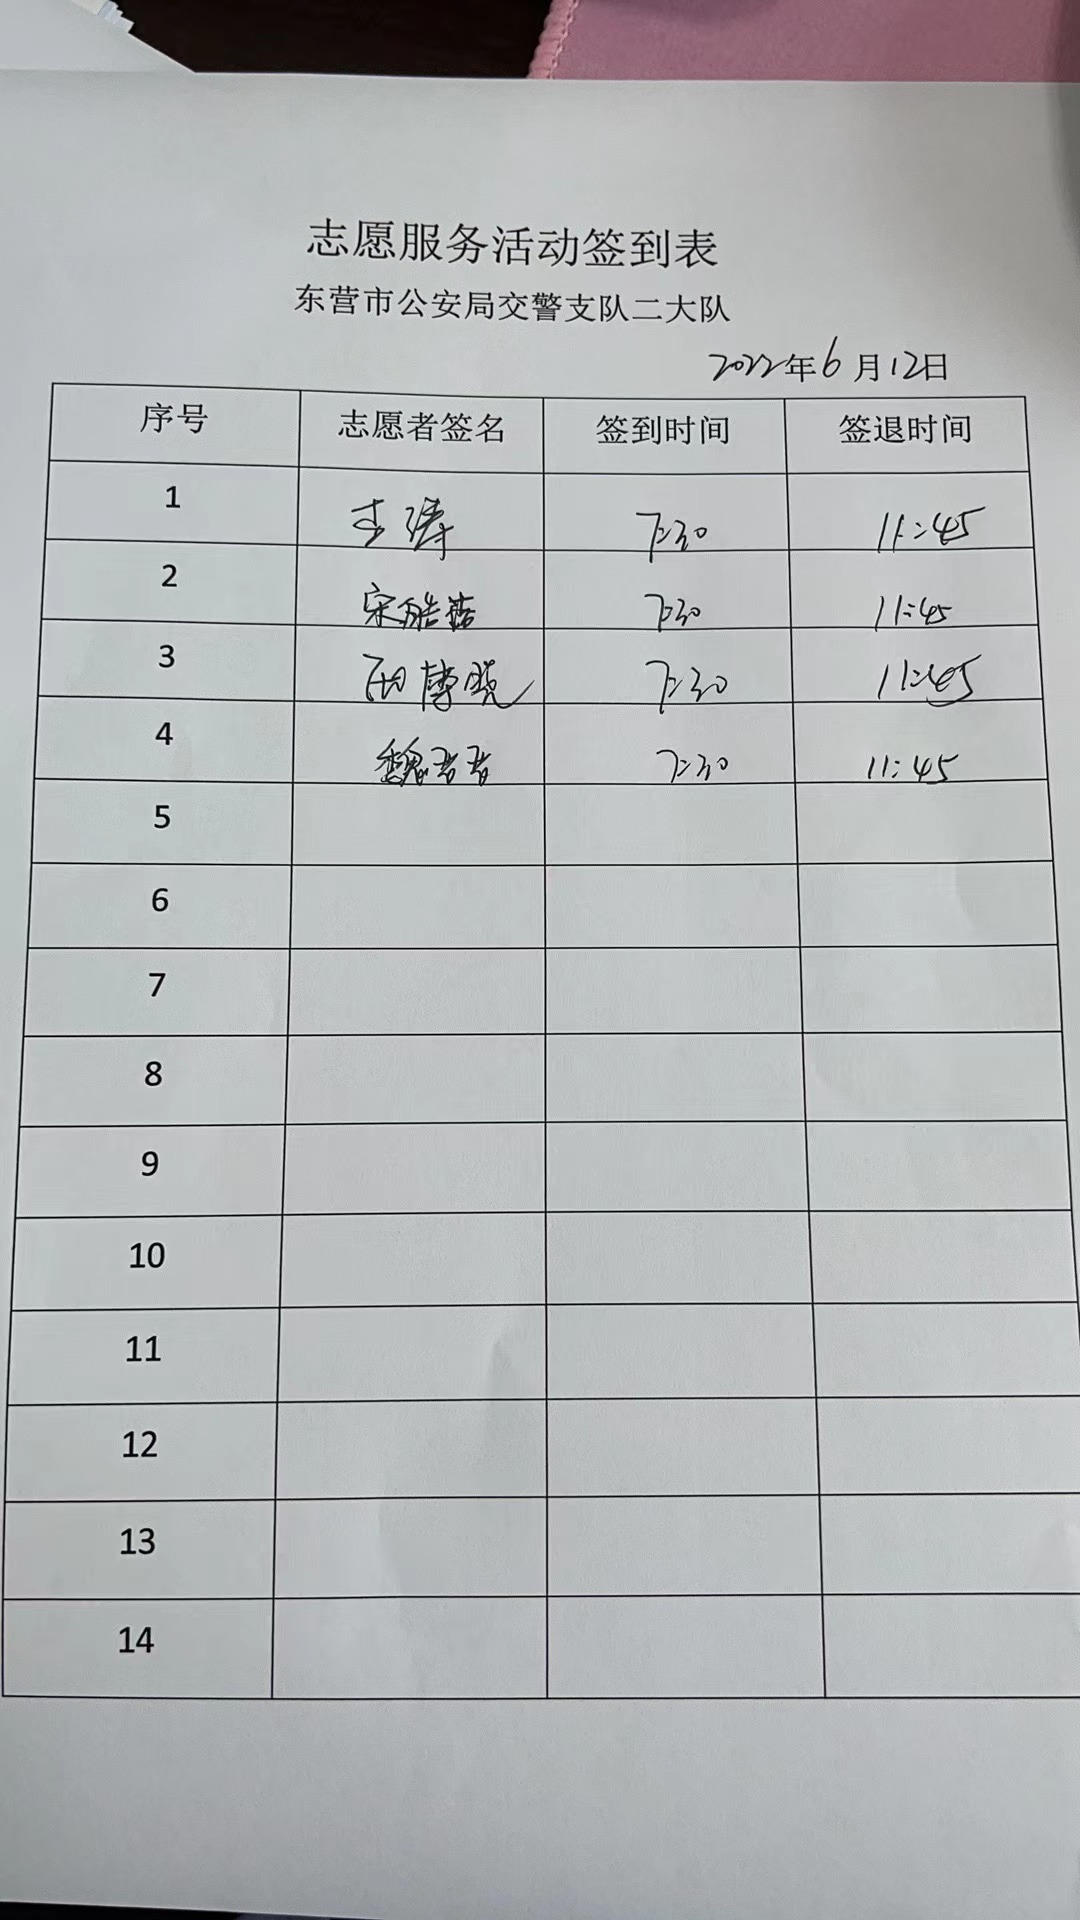 志愿服务活动签到表
东营市公安局交警支队二大队
2022年6月12日
序号 志愿者签名 签到时间 签退时间
1 王涛 7:30 11:45
2 宋 7:30 11:45
3 博晓 7:30 11:45
4 魏君君 7:30 11:45
5
6
7
8
9
10
11
12
13
14